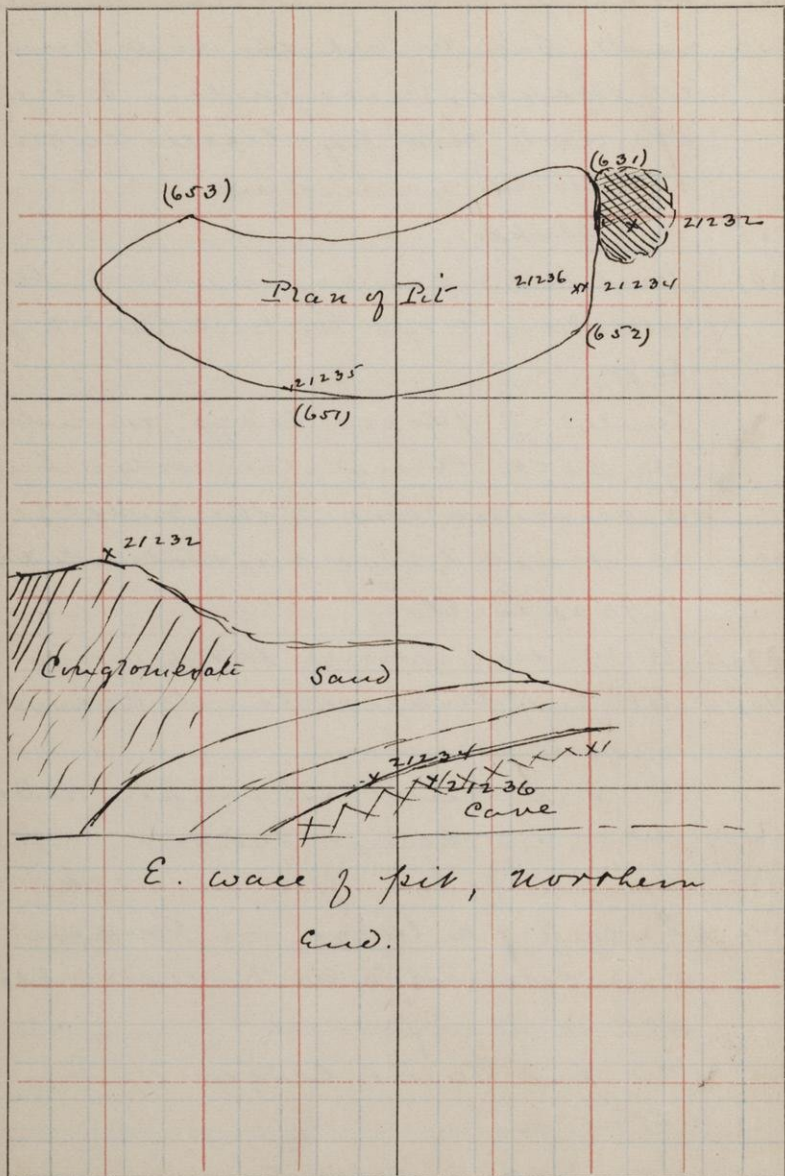 (631)
(653)
21232
Plan of Pit
21236
21234
(652)
21235
(651)
21232
Conglomerate
Sand
21234
21236
Cave
E. wall of pit, northern
End.